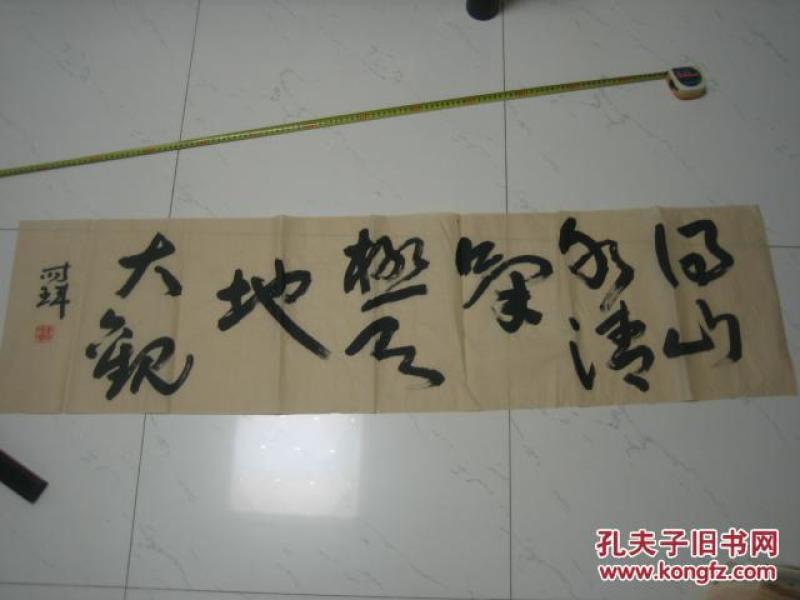 得山
水清
氣
極天
地
大觀
孔夫子旧书网
www.kongfz.com